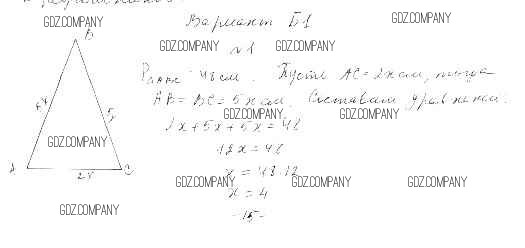 Вариант Б1
№1
P ABC = 48 см. Пусть AC = 2x см, тогда
AB = BC = 5x см. Составим уравнение:
2x + 5x + 5x = 48
12x = 48
x = 48:12
x = 4
-15-
B
5x
5x
A
2x
C
GDZ.COMPANY
GDZ.COMPANY
GDZ.COMPANY
GDZ.COMPANY
GDZ.COMPANY
GDZ.COMPANY
GDZ.COMPANY
GDZ.COMPANY
GDZ.COMPANY
GDZ.COMPANY
GDZ.COMPANY